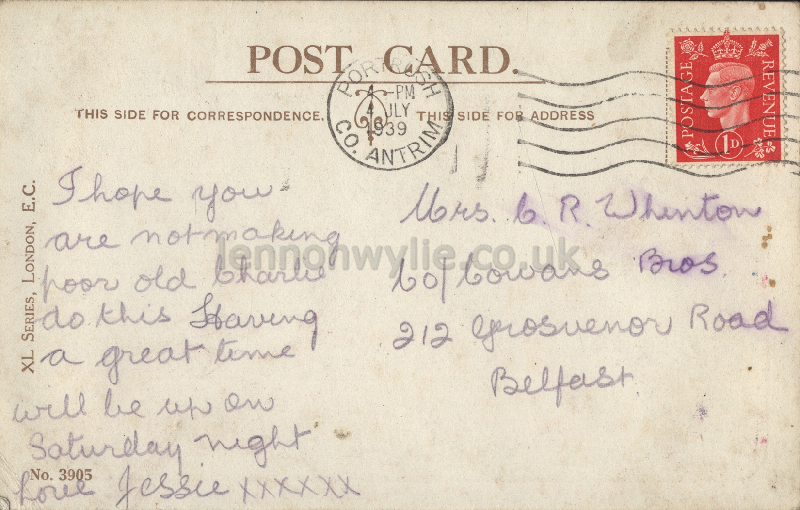 POST CARD.
THIS SIDE FOR CORRESPONDENCE.
THIS SIDE FOR ADDRESS
PORTRUSH
4 - PM
4 JLY
1939
CO. ANTRIM
POSTAGE
REVENUE
1D
XL SERIES, LONDON, E.C.
I hope you
are not making
poor old Charlie
do this Having
a great time
will be up on
Saturday night
Love Jessie xxxxxx
No. 3905
Mrs. C. R. Whinton
Co/ Cowans Bros.
212 Grosvenor Road
Belfast
lennonwylie.co.uk